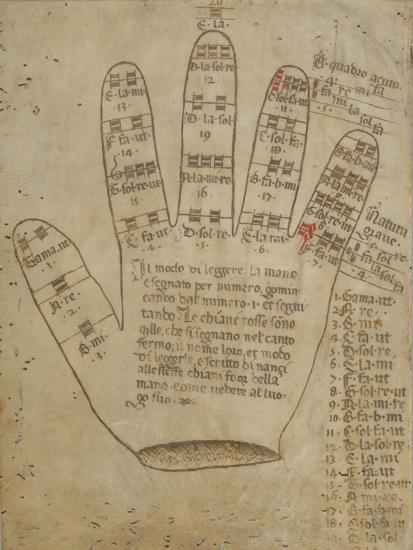 20
E·la·
D·la·sol·re·
12
E·la·mi·
·13·
C·sol·fa·ut
11
D·la·sol·
19
F·fa·ut
·14·
C·sol·fa·
·18·
A·la·mi·re·
16·
G·sol·re·ut
15
G·fa·b·mi·
·17·
C·fa·ut
·4·
D·sol·re·
·5·
E·la·mi·
·6·
·quadro acuto·
·4·
fa re mi fa
·5·
mi la
sol fa
Natura
grave·
fa sol
la
Gama·ut·
·1·
A·re·
·2·
B·mi·
·3·
Il modo di leggere la mano
e segnato per numero, comin
cando dal numero·1·et segui
tando· Le chiave rosse sono
qlle, che si segnano nel canto
fermo; il nome loro, et modo
di leggerle, e scritto di nanzi
alle stesse chiavi fora della
mano, come vedete al luo·
go suo·
1·Gama·ut·
2·A·re·
3·B·mi·
4·C·fa·ut
5·D·sol·re
6·E·la·mi·
7·F·fa·ut
8·G·sol·re·ut
9·A·la·mi·re
10·B·fa·b·mi
11·C·sol·fa·ut
12·D·la·sol·re
13·E·la·mi
14·F·fa·ut
15·G·sol·re·ut
16·A·mi·re·
17·B·fa·b·mi
18·C·sol·fa
19·D·la·sol